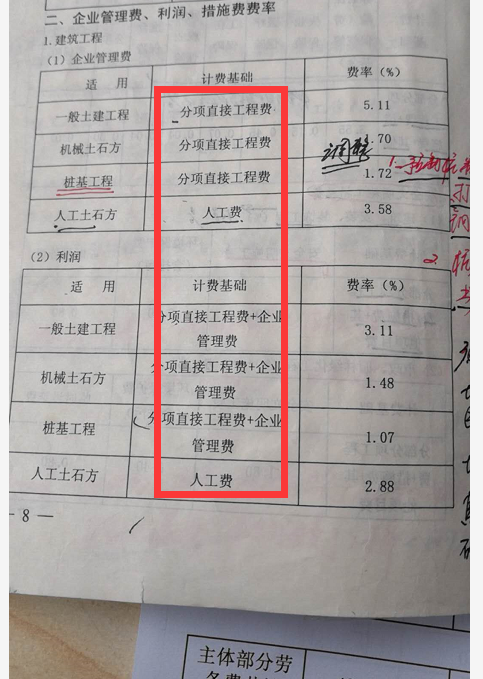 二、企业管理费、利润、措施费费率
1.建筑工程
(1)企业管理费
适 用 计费基础 费率(%)
一般土建工程 分项直接工程费 5.11
机械土石方 分项直接工程费 1.70
桩基工程 分项直接工程费 1.72
人工土石方 人工费 3.58
调整
(2)利润
适 用 计费基础 费率(%)
一般土建工程 分项直接工程费+企业管理费 3.11
机械土石方 分项直接工程费+企业管理费 1.48
桩基工程 分项直接工程费+企业管理费 1.07
人工土石方 人工费 2.88
— 8 —
主体部分劳